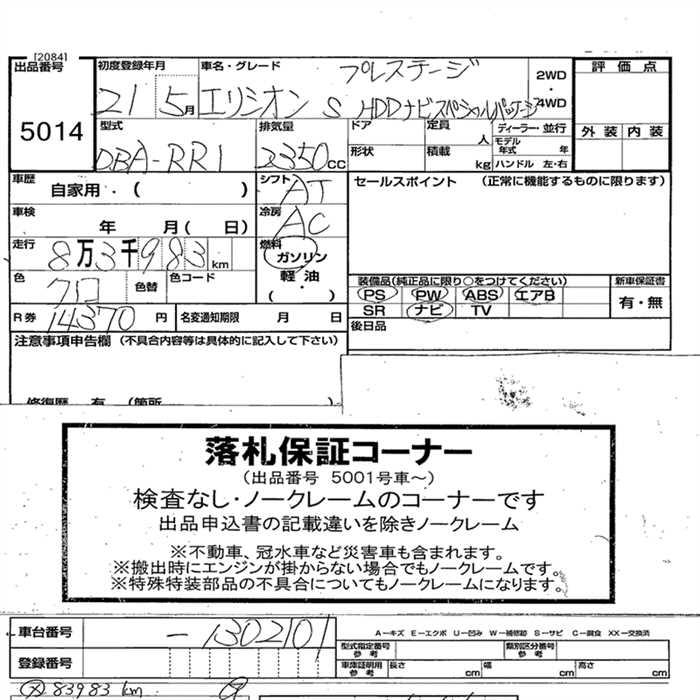 [2084]
出品番号 5014
初度登録年月 21 5月
車名・グレード プレステージ
エリシオン S HDDナビスペシャルパッケージ
2WD
・
4WD
評価点
外装 内装
型式 DBA-RR1
排気量 2350cc
ドア
形状
定員 人
積載 kg
ディーラー・並行
モデル年式 年
ハンドル 左・右
車歴 自家用・( )
シフト AT
車検 年 月( 日)
冷房 AC
走行 8万3千983km
燃料 ガソリン
軽・油
( ・ )
色 クロ
色替
色コード
R券 14370円
名変通知期限 月 日
セールスポイント (正常に機能するものに限ります)
装備品(純正品に限り○をつけてください)
PS PW ABS エアB
SR ナビ TV
新車保証書
有・無
後日品
注意事項申告欄 (不具合内容等は具体的に記入して下さい)
修復歴 有 (箇所 )
落札保証コーナー
(出品番号 5001号車~)
検査なし・ノークレームのコーナーです
出品申込書の記載違いを除きノークレーム
※不動車、冠水車など災害車も含まれます。
※搬出時にエンジンが掛からない場合でもノークレームです。
※特殊特装部品の不具合についてもノークレームになります。
車台番号 -1302101
登録番号
A-キズ E-エクボ U-凹み W-補修跡 S-サビ C-腐食 XX-交換済
型式指定番号 参考
類別区分番号 参考
車庫証明用 参考 長さ cm 幅 cm 高さ cm
83983 km